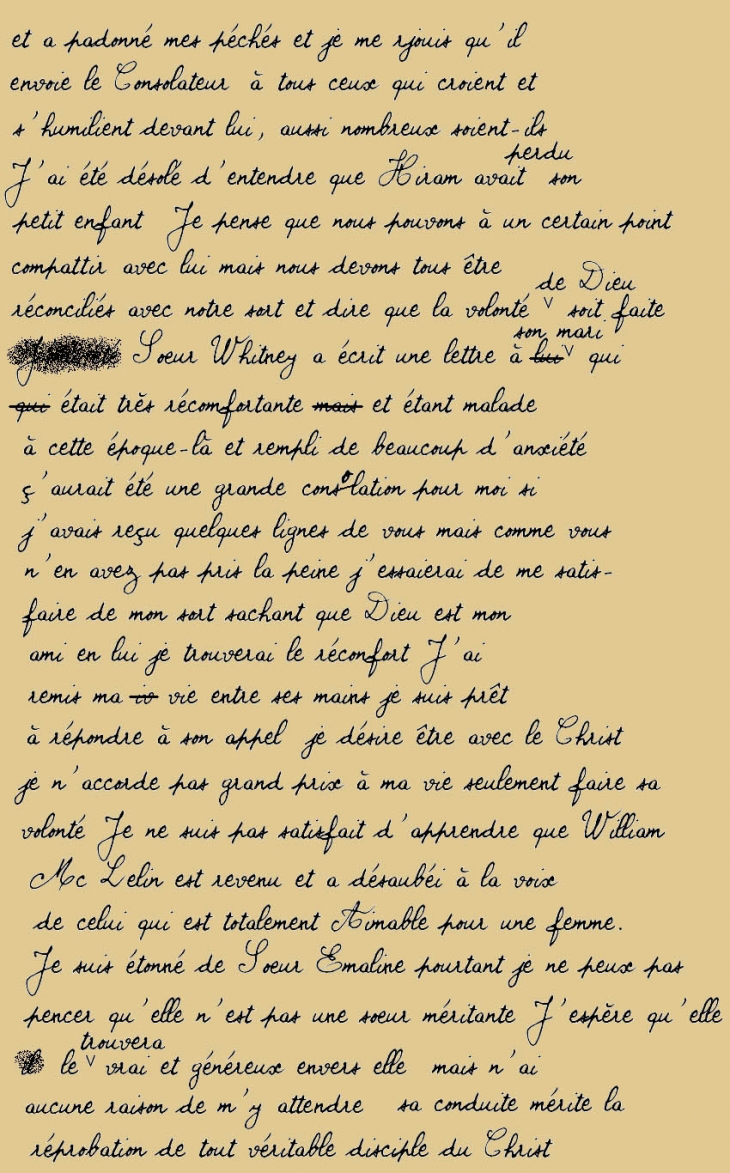 et a padonné mes péchés et je me rjouis qu'il
envoie le Consolateur à tous ceux qui croient et
s'humilient devant lui, aussi nombreux soient-ils
perdu
J'ai été désolé d'entendre que Hiram avait son
petit enfant Je pense que nous pouvons à un certain point
compattir avec lui mais nous devons tous être
de Dieu
réconciliés avec notre sort et dire que la volonté ˅ soit faite
son mari
Soeur Whitney a écrit une lettre à lui ˅ qui
qui était très récomfortante mais et étant malade
à cette époque-là et rempli de beaucoup d'anxiété
ç'aurait été une grande consolation pour moi si
j'avais reçu quelques lignes de vous mais comme vous
n'en avez pas pris la peine j'essaierai de me satis-
faire de mon sort sachant que Dieu est mon
ami en lui je trouverai le réconfort J'ai
remis ma io vie entre ses mains je suis prêt
à répondre à son appel je désire être avec le Christ
je n'accorde pas grand prix à ma vie seulement faire sa
volonté Je ne suis pas satisfait d'apprendre que William
Mc Lelin est revenu et a désaubéi à la voix
de celui qui est totalement Aimable pour une femme.
Je suis étonné de Soeur Emaline pourtant je ne peux pas
pencer qu'elle n'est pas une soeur méritante J'espère qu'elle
trouvera
le ˅ vrai et généreux envers elle mais n'ai
aucune raison de m'y attendre sa conduite mérite la
réprobation de tout véritable disciple du Christ